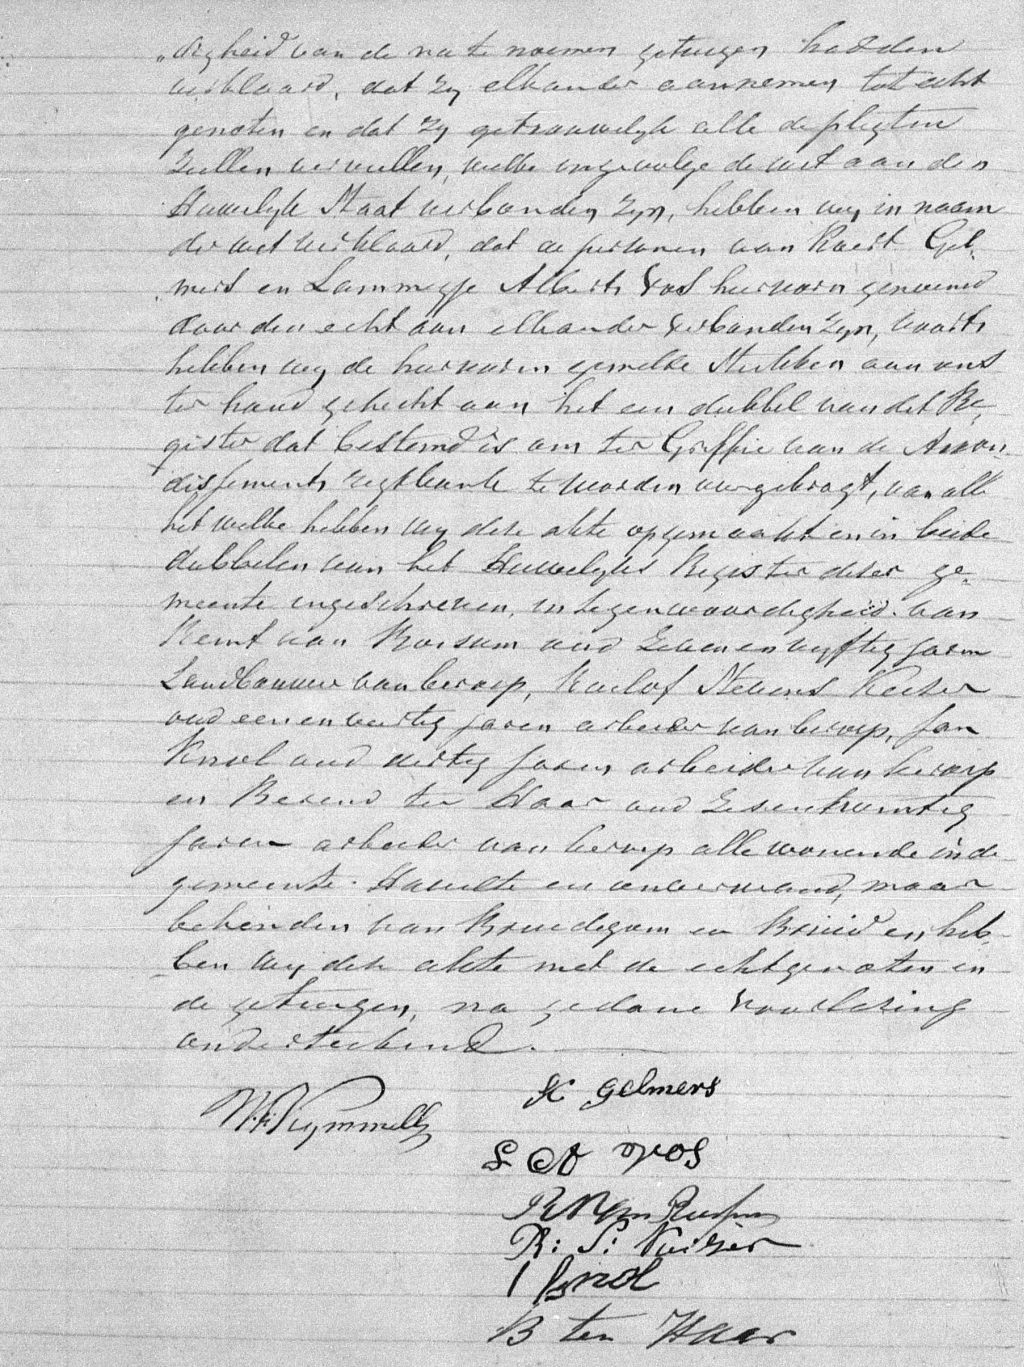 „digheid van de na te noemen getuigen hadden
verklaard, dat zy elkander aannemen tot echt
genoten en dat zy getrouwelyk alle de pligten
zullen vervullen, welke ingevolge de wet aan den
Huwelyk Staat verbonden zyn, hebben wy in naam
der wet verklaard, dat de personen van Koert Gel-
mers en Lammegje Alberts Vos hiervoren genoemd
door den echt aan elkander verbonden zyn, voorts
hebben wy de hiervoren gemelde Stukken aan ons
ter hand gehecht aan het een dubbel van dit Re-
gister dat bestemd is om ter Griffie van de Arron-
dissements regtbank te worden overgebragt, van all
het welke hebben wy deze akte opgemaakt en in beide
dubbelen van het Huwelyks Register dezer ge-
meente ingeschreven, in tegenwoordigheid van
van oud Zevenenvyftig Jaren
Landbouwer van beroep, Roelof Stevens Keizer
oud eenenveertig jaren arbeider van beroep, Jan
Knol oud dertig Jaren arbeider van beroep
en Berend ten Haar oud Zesentwintig
Jaren arbeider van beroep alle wonende in de
gemeente Havelte en onverwand, maar
bekenden van Bruidegom en Bruid en heb-
ben wy deze akte met de echtgenoten en
de getuigen, na gedane voorlezing
onderteekend.
K Gelmers
Kymmell
L A Vos
R van
R: S: Keizer
J Knol
B ten Haar